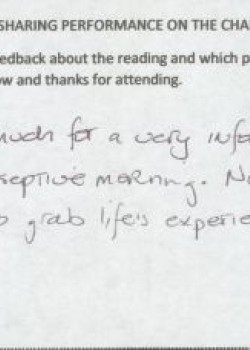 SHARING PERFORMANCE ON THE CHA
eedback about the reading and which p
ow and thanks for attending.
much for a very info
ceptive morning. N
grab life's experie